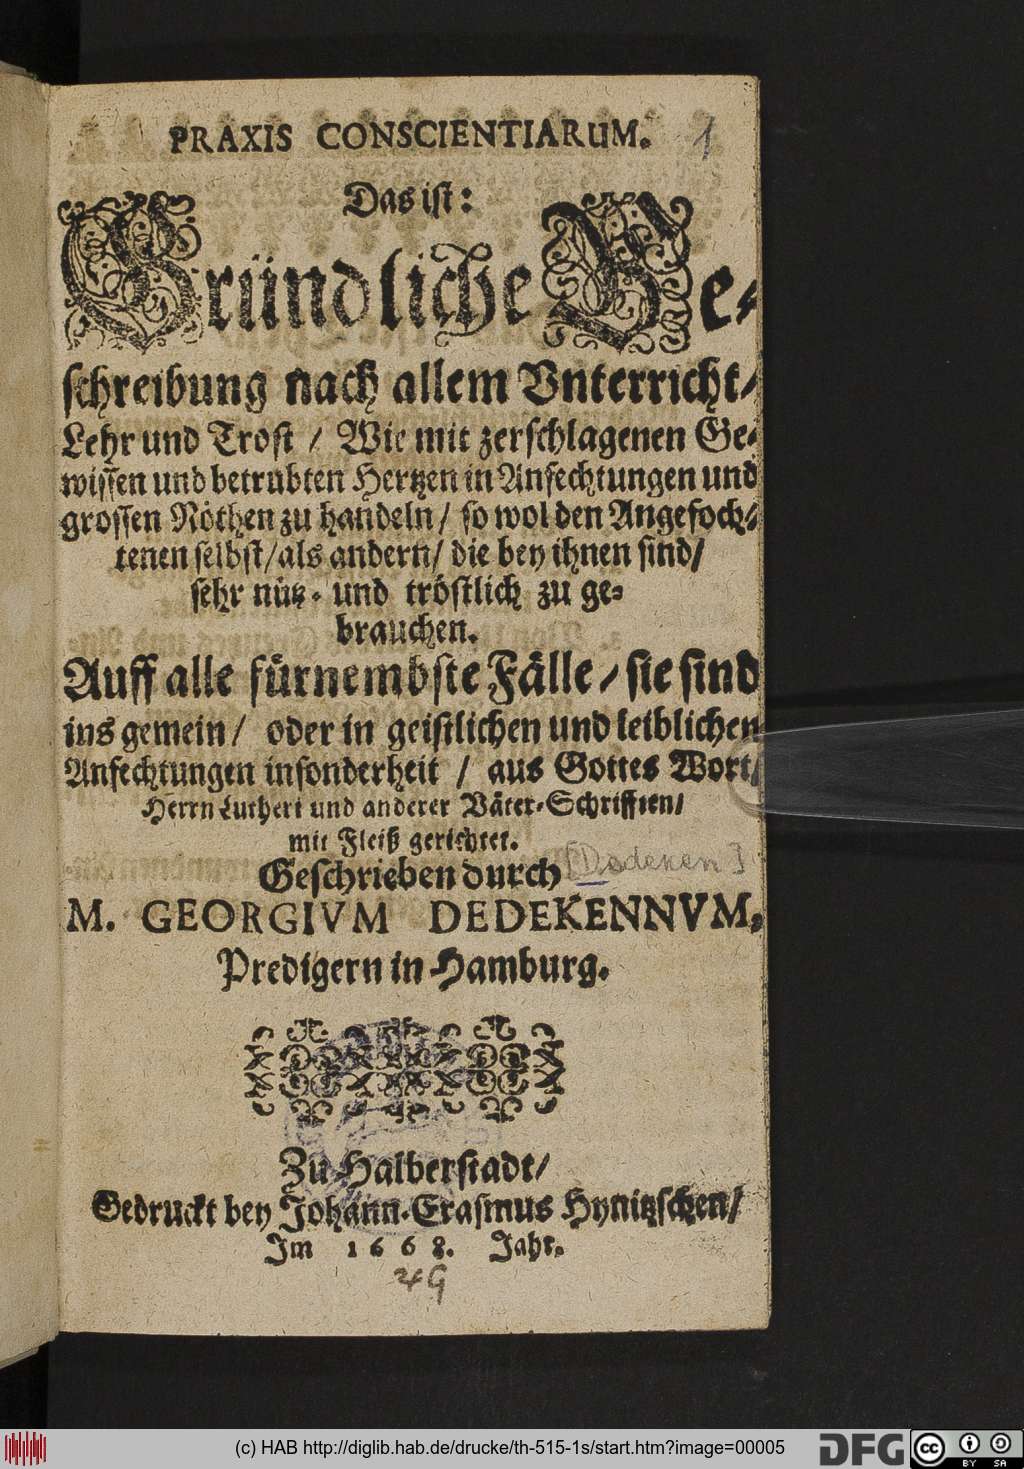 PRAXIS CONSCIENTIARUM. 1
Das ist:
Gründliche Be-
schreibung nach allem Vnterricht/
Lehr und Trost / Wie mit zerschlagenen Ge-
wissen und betrübten Hertzen in Anfechtungen und
grossen Nöthen zu handeln / so wol den Angefoch-
tenen selbst/ als andern/ die bey ihnen sind/
sehr nütz- und tröstlich zu ge-
brauchen.
Auff alle fürnembste Fälle / sie sind
ins gemein / oder in geistlichen und leiblichen
Anfechtungen insonderheit / aus Gottes Wort/
Herrn Lutheri und anderer Väter-Schrifften/
mit Fleiß gerichtet.
Geschrieben durch [Dedeken]
M. GEORGIVM DEDEKENNVM,
Predigern in Hamburg.
Zu Halberstadt/
Gedruckt bey Johann-Erasmus Hynitzschen/
Im 1668. Jahr.
(c) HAB http://diglib.hab.de/drucke/th-515-1s/start.htm?image=00005 DFG cc BY SA